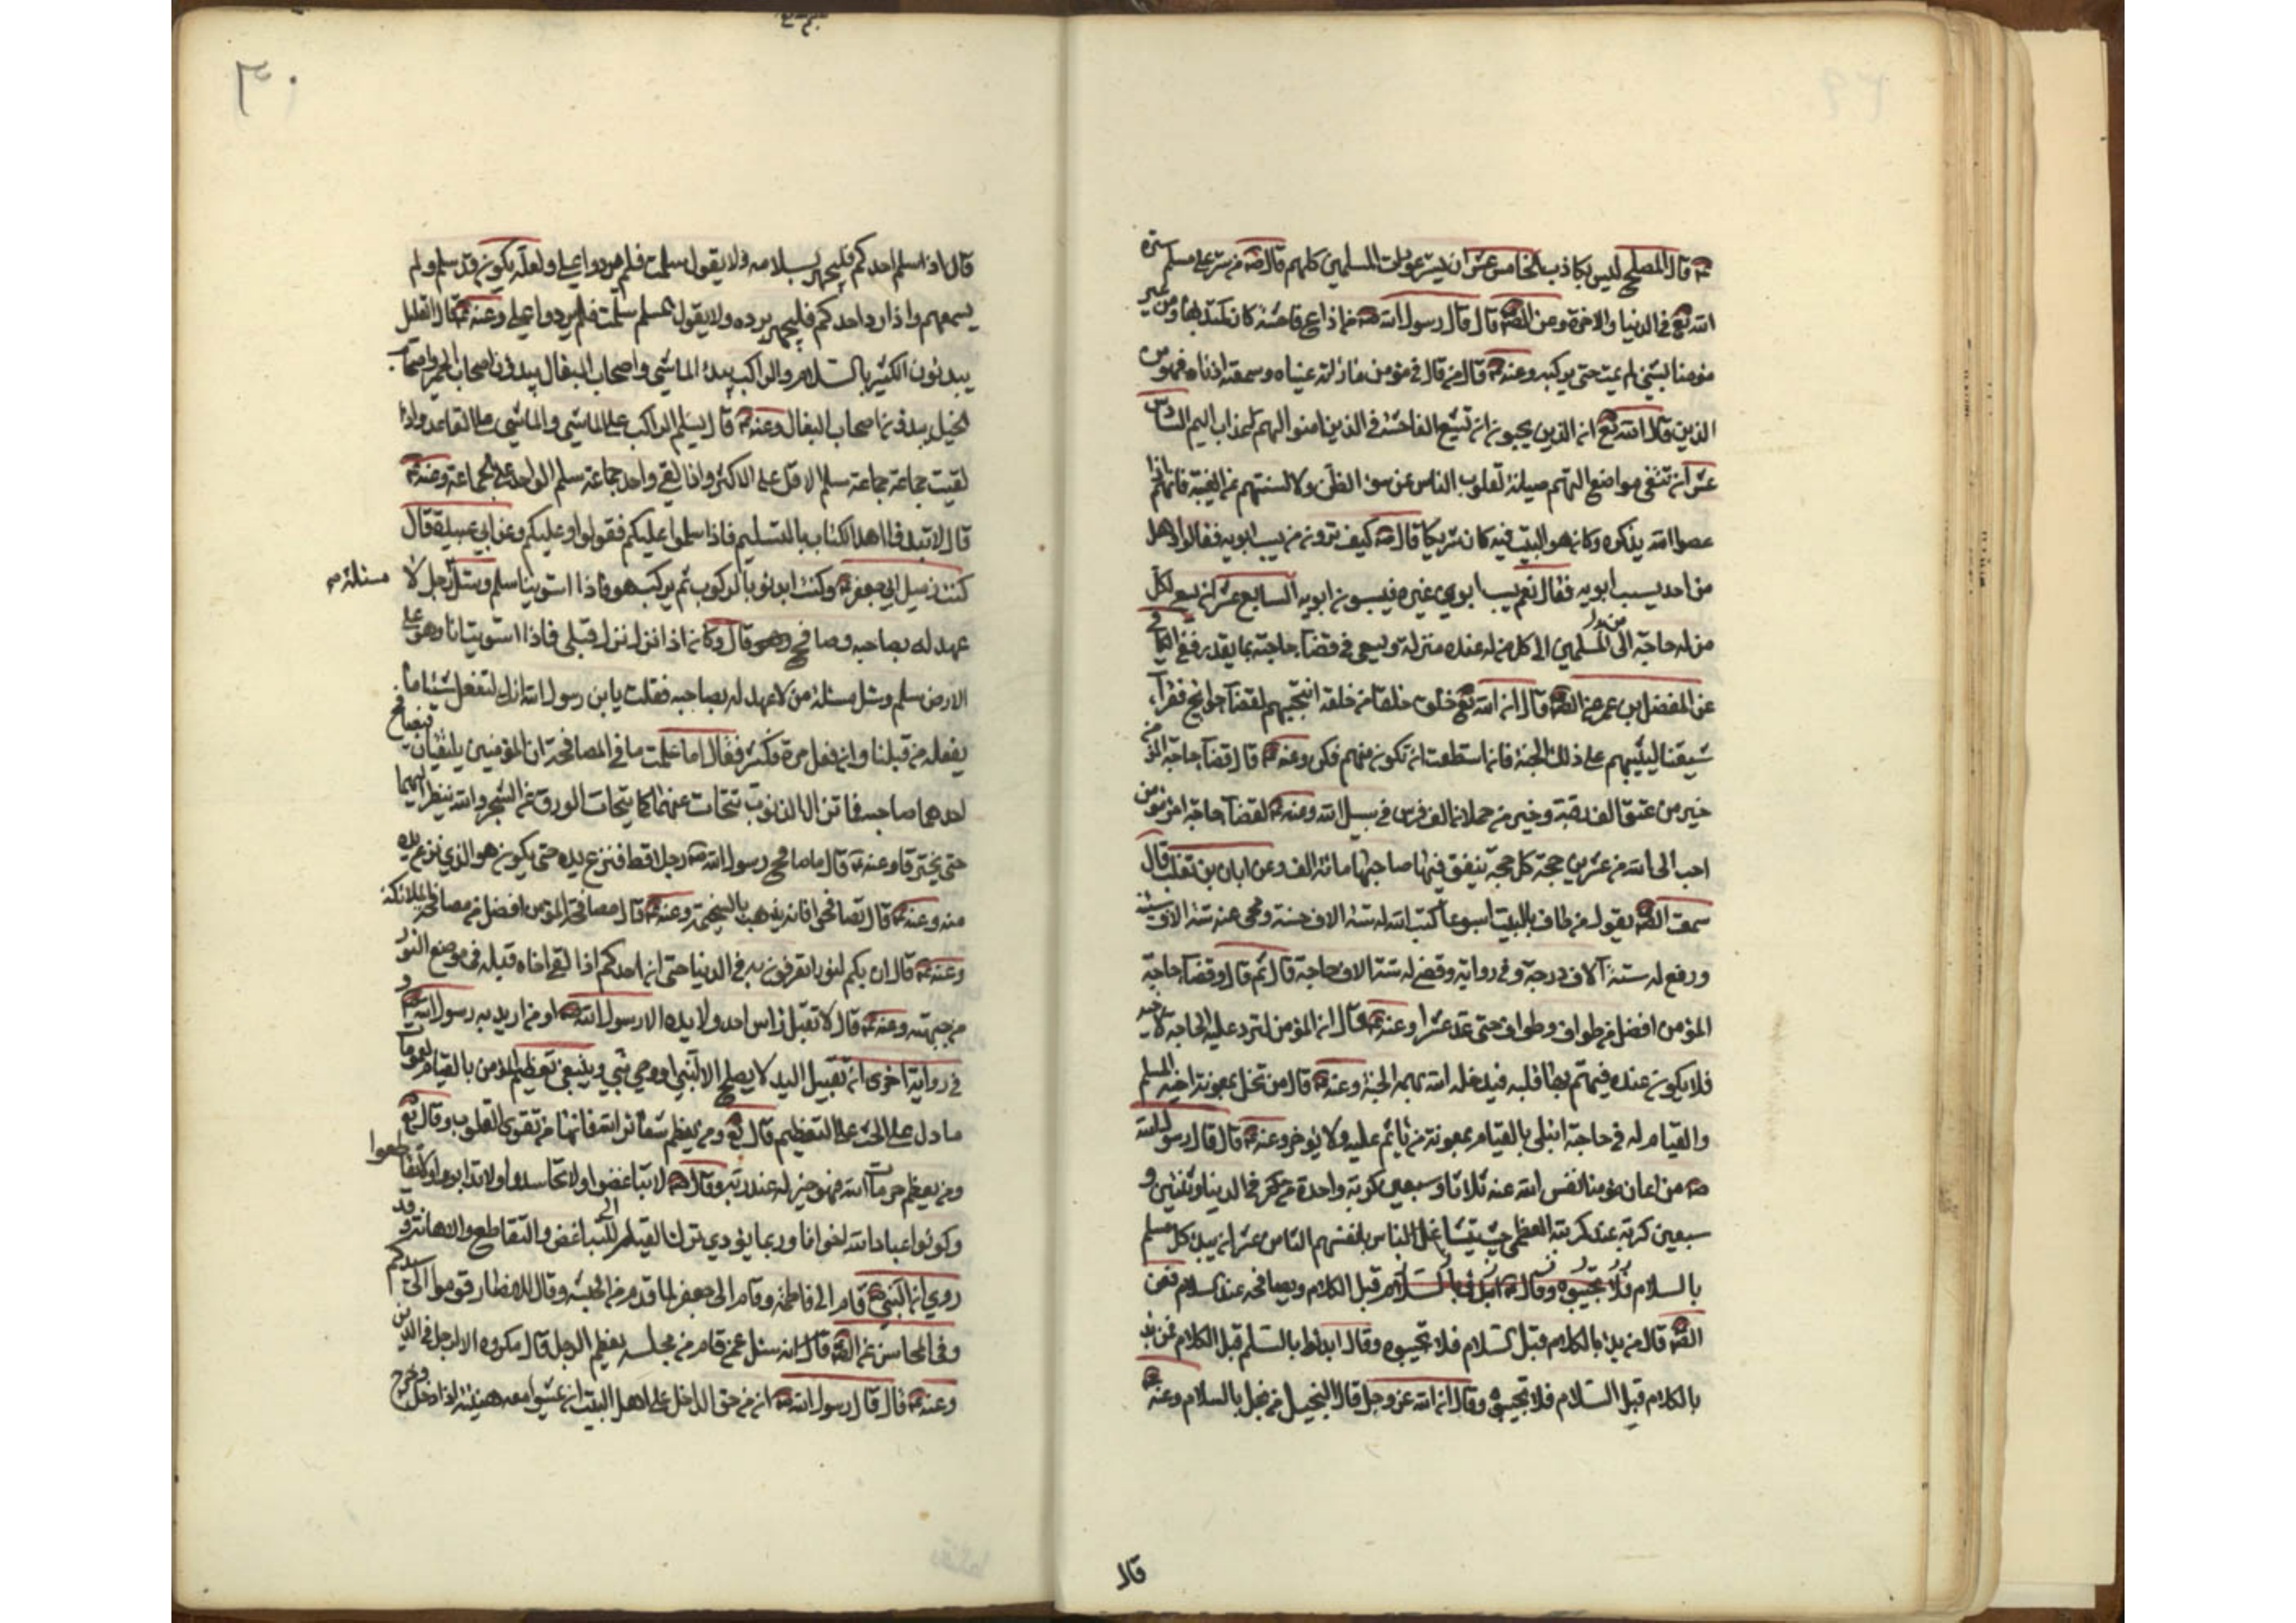 ع قال المصلح ليس بكاذب الخامس عشر ان يستر عورات المسلمين كلهم قال ص من ستر على مسلم ستره
الله تع في الدنيا والاخرة وعن الص ع قال قال رسول الله ص من اذاع فاحشة كان كمبتدئها ومن عير
مومنا بشئ لم يمت حتى يركبه وعنه ع قال من قال في مؤمن ما رأته عيناه وسمعته اذناه فهو من
الذين قال الله تع ان الذين يحبون ان تشيع الفاحشة في الذين امنوا لهم عذاب اليم السادس
عشر ان تتقى مواضع التهم صيانة لقلوب الناس عن سوء الظن ولالسنتهم عن الغيبة فانهم اذا
عصوا الله بذكره وكان هو السبب فيه كان شريكا قال ص كيف ترون من يسب ابويه فقالوا وهل
من احد يسب ابويه فقال نعم يسب ابوي غيره فيسبون ابويه السابع عشر ان يشفع لكل
من له حاجة الى المسلمين الى كل من له عنده منزلة ويسعى في قضاء حاجته بما يقدر ففي الكافي
عن المفضل بن عمر عن الص ع قال ان الله تع خلق خلقا من خلقه انتجبهم لقضاء حوائج فقراء
شيعتنا ليثيبهم على ذلك الجنة فان استطعت ان تكون منهم فكن وعنه ع قال قضاء حاجة المؤمن
خير من عتق الف رقبة وخير من حملان الف فرس في سبيل الله وعنه ع لقضاء حاجة امرئ مؤمن
احب الى الله من عشرين حجة كل حجة ينفق فيها صاحبها مائة الف وعن ابان بن تغلب قال
سمعت الص ع يقول من طاف بالبيت اسبوعا كتب الله له ستة الاف حسنة ومحى عنه ستة الاف سيئة
ورفع له ستة آلاف درجة وفي رواية وقضى له ستة الاف حاجة قال ثم قال وقضاء حاجة
المؤمن افضل من طواف وطواف حتى عد عشرا وعنه ع قال ان المؤمن لترد عليه الحاجة لاخيه
فلا يكون عنده فيهتم بها قلبه فيدخله الله بهمه الجنة وعنه ع قال من بخل بمعونة اخيه المسلم
والقيام له في حاجة ابتلى بالقيام بمعونة من يأثم عليه ولا يؤجر وعنه ع قال قال رسول الله
ص من اعان مؤمنا نفس الله عنه ثلاثا وسبعين كربة واحدة في الدنيا وثنتين و
سبعين كربة عند كربته العظمى حيث يتشاغل الناس بانفسهم الثامن عشر ان يبدء كل مسلم
بالسلام قبل الكلام ويصافحه عند السلام فعن
الص ع قال من بدء بالكلام قبل السلام فلا تجيبوه وقال ابدؤا بالسلام قبل الكلام فمن بدء
بالكلام قبل السلام فلا تجيبوه وقال ان الله عز وجل قال البخيل من بخل بالسلام وعنه ع
قال
٣٠
قال اذا سلم احدكم فليجهر بسلامه ولا يقول سلمت فلم يردوا علي ولعله يكون قد سلم ولم
يسمعهم واذا رد احدكم فليجهر برده ولا يقول المسلم سلمت فلم يردوا علي وعنه ع قال القليل
يبدئون الكثير بالسلام والراكب يبدء الماشي واصحاب البغال يبدؤن اصحاب الحمير واصحاب
الخيل يبدؤن اصحاب البغال وعنه ع قال يسلم الراكب على الماشي والماشي على القاعد واذا
لقيت جماعة جماعة سلم الاقل على الاكثر واذا لقي واحد جماعة سلم الواحد على الجماعة وعنه ع
قال لا تبدؤا اهل الكتاب بالتسليم فاذا سلموا عليكم فقولوا وعليكم وعن ابي عبيدة قال
كنت زميل ابي جعفر ع وكنت ابدئو بالركوب ثم يركب هو فاذا استوينا سلم وسئل رجل لا
مسئلة
عهد له بصاحبه وصافح قال وكان اذا نزل نزل قبلي فاذا استويت انا وهو على
الارض سلم وسئل مسئلة من لا عهد له بصاحبه فقلت يابن رسول الله انك لتفعل شيئا ما
يفعله من قبلنا وان فعل مرة فكثير فقال اما علمت ما في المصافحة ان المؤمنين يلتقيان فيصافح
احدهما صاحبه فما تزال الذنوب تتحات عنهما كما يتحات الورق عن الشجر والله ينظر اليهما
حتى يفترقا وعنه ع قال ما صافح رسول الله ص رجلا قط فنزع يده حتى يكون هو الذي نزع يده
منه وعنه ع قال تصافحوا فانه يذهب بالسخيمة وعنه ع قال مصافحة المؤمن افضل من مصافحة الملائكة
وعنه ع قال ان بكم لنورا تعرفون به في الدنيا حتى ان احدكم اذا لقى اخاه قبله في موضع النور
من جبهته وعنه ع قال لا تقبل رأس احد ولا يده الا رسول الله ص او من اريد به رسول الله ص و
في رواية اخرى ان تقبيل اليد لا يصلح الا لنبي او وصي نبي وينبغي تعظيم المؤمن بالقيام لعمومات
ما دل على الحث على التعظيم قال تع ومن يعظم شعائر الله فانها من تقوى القلوب وقال تع
ومن يعظم حرمات الله فهو خير له عند ربه وقال ص لا تباغضوا ولا تحاسدوا ولا تدابروا ولا تقاطعوا
وكونوا عباد الله اخوانا وربما يؤدي ترك القيام الى التباغض والتقاطع والاهانة وقد
روي ان النبي ص قام الى فاطمة وقام الى جعفر لما قدم من الحبشة وقال للانصار قوموا الى سيدكم
وفي المحاسن عن الص ع قال انه سئل عمن قام من مجلسه تعظيم الرجل قال مكروه الا لرجل في الدين
وعنه ع قال قال رسول الله ص ان من حق الداخل على اهل البيت ان يمشوا معه هنيئة اذا دخل وخرج